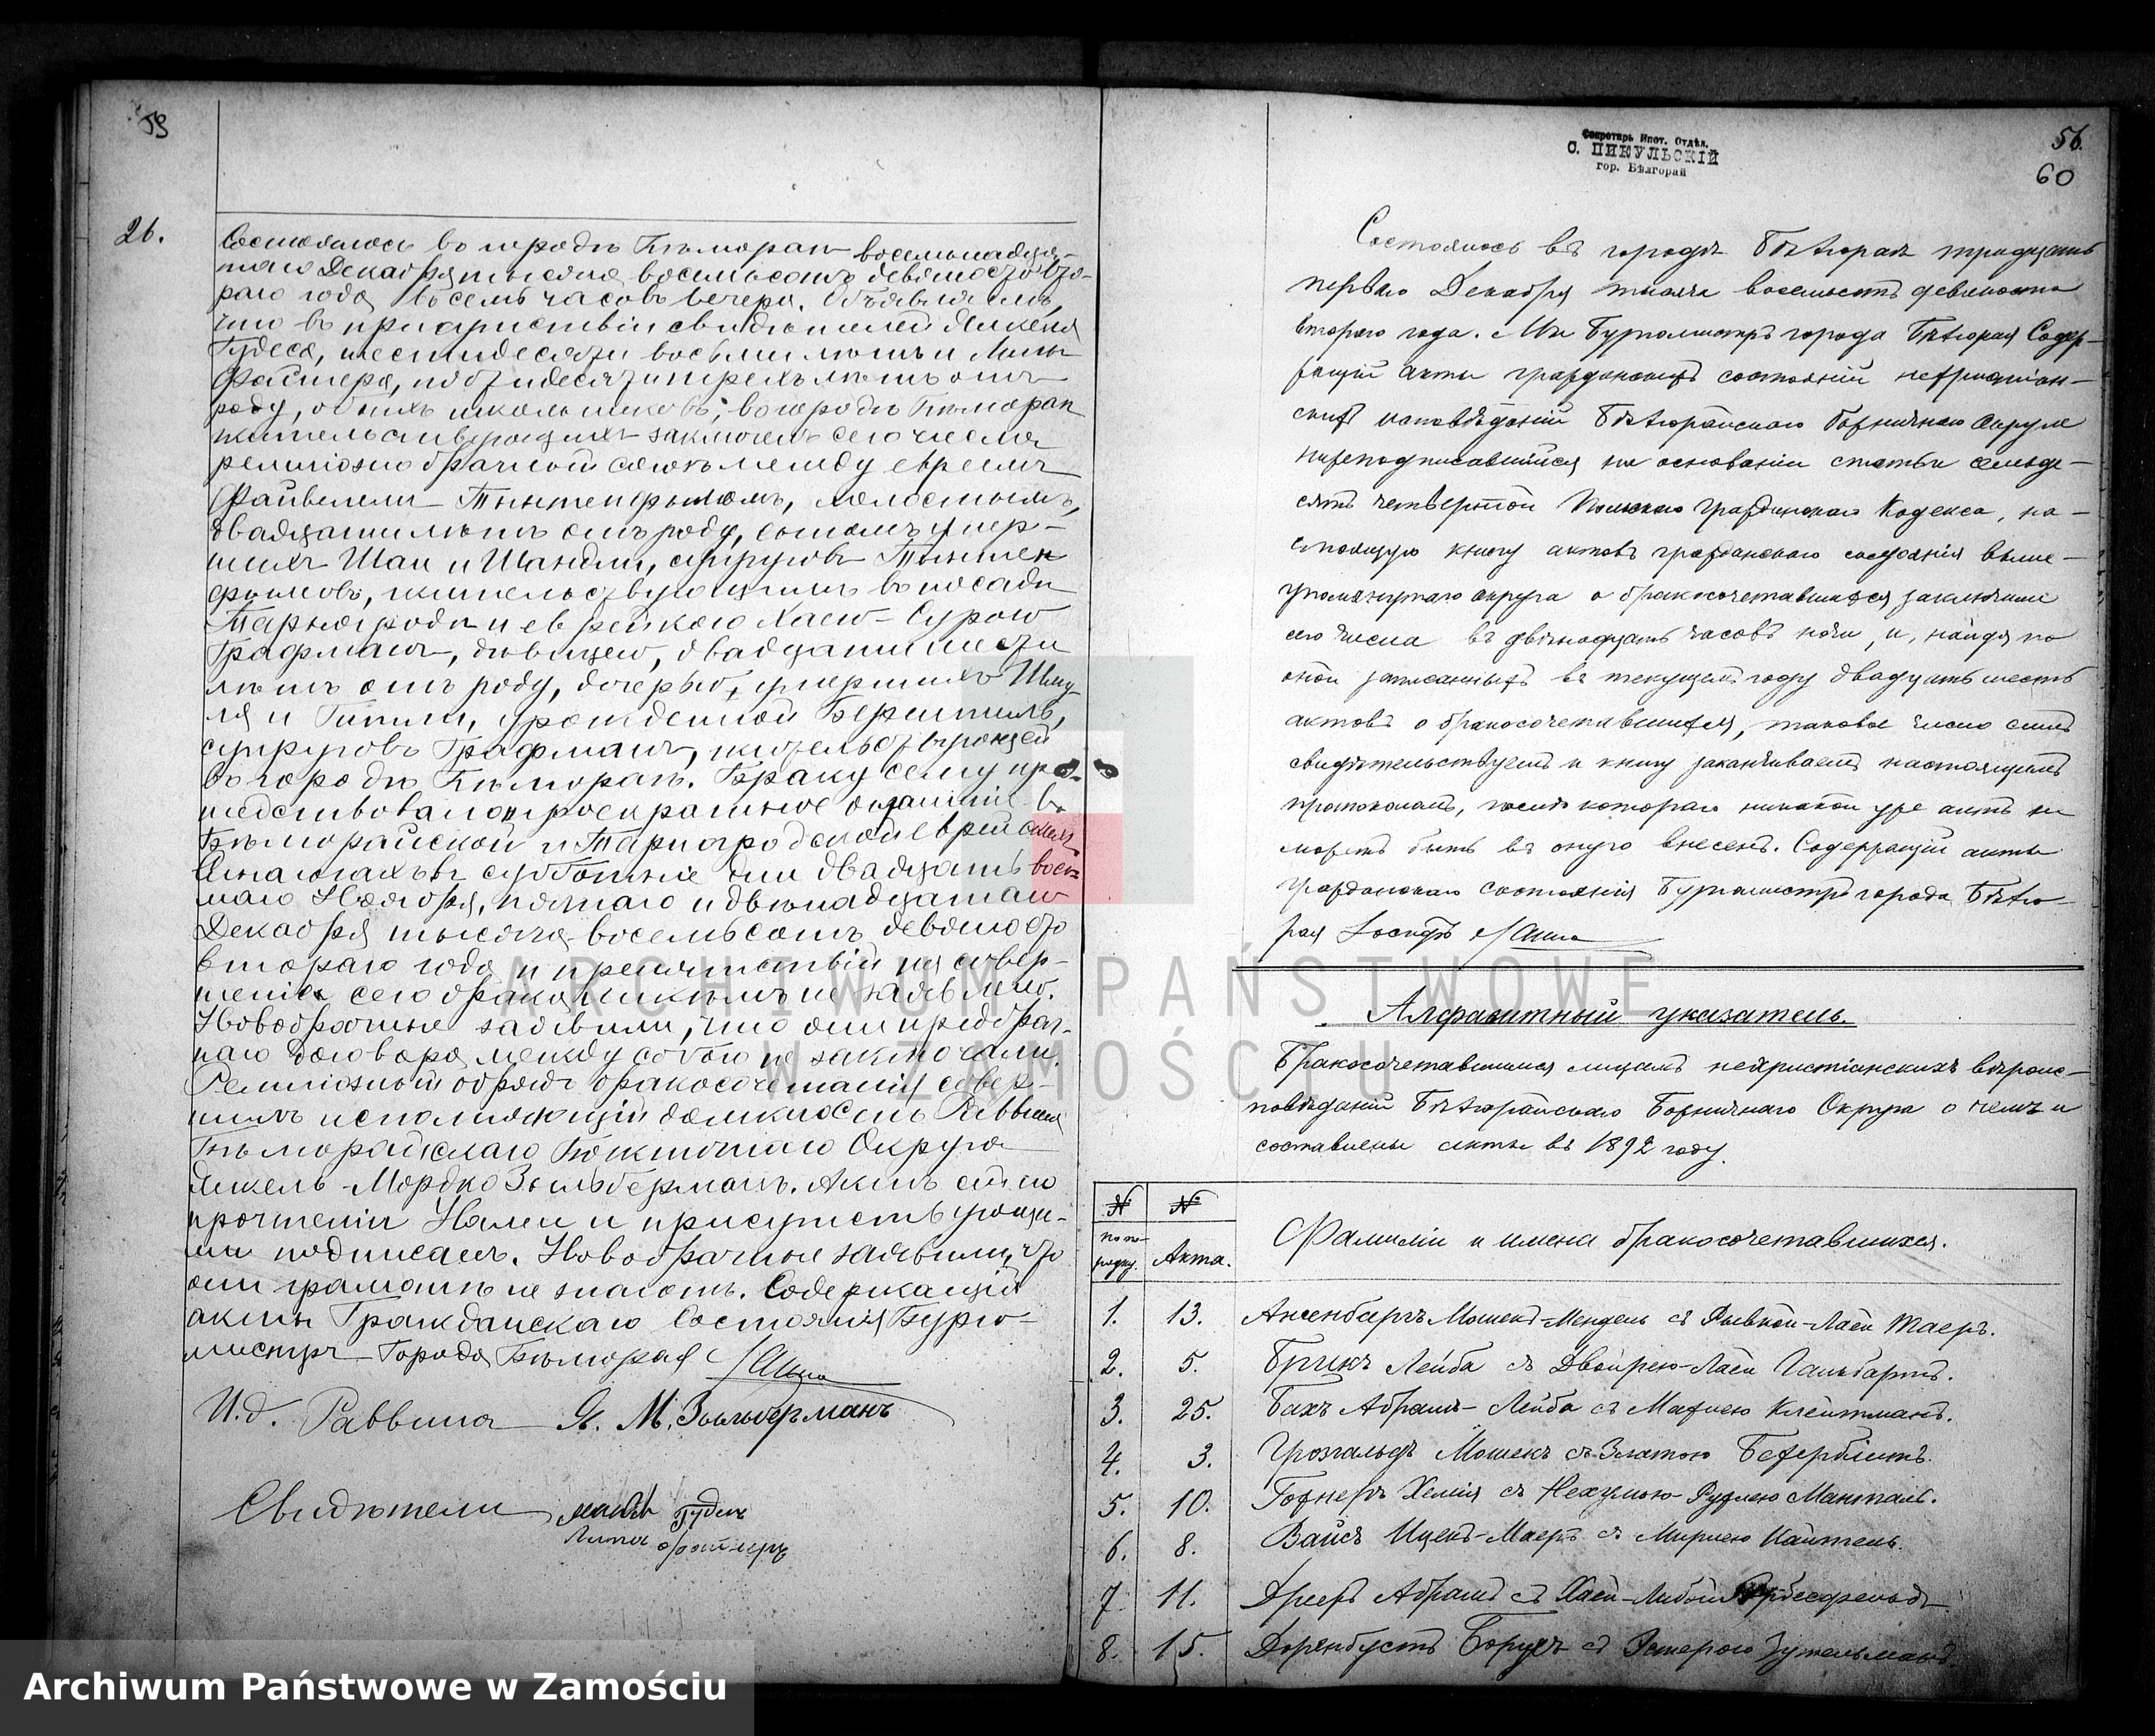 59
26.
Состоялось въ городѣ Бѣлгораѣ восемьнадца-
таго Декабря тысяча восемьсотъ девяносто вто-
раго года въ семь часовъ вечера. Объявляемъ,
что въ присутствіи свидѣтелей Янкеля
Гудеса, шестидесяти восьми лѣтъ и Липы
Файнера, пятидесяти трехъ лѣтъ отъ
роду, обоихъ школьниковъ, въ городѣ Бѣлгораѣ
жительствующихъ заключенъ сего числа
религіозно брачный союзъ между евреемъ
Файвелемъ Тынтенфышомъ, холостымъ,
двадцати лѣтъ отъ роду, сыномъ умер-
шихъ Шаи и Шандли, супруговъ Тынтен
фышовъ, жительствующимъ въ посадѣ
Тарногродѣ и еврейкою Хаею-Сурою
Графманъ, дѣвицею, двадцати шести
лѣтъ отъ роду, дочерью умершихъ Шму-
ля и Гитли, урожденной Берштинъ,
супруговъ Графманъ, жительствующей
въ городѣ Бѣлгораѣ. Браку сему пред-
шествовало троекратное оглашеніе въ
Бѣлгорайской и Тарногродской еврейскихъ
Синагогахъ въ субботніе дни двадцать вось-
маго Ноября, пятаго и двѣнадцатаго
Декабря тысяча восемьсотъ девяносто
втораго года и препятствій на совер-
шеніе сего брака никѣмъ не заявлено.
Новобрачные заявили, что они предбрач-
наго договора между собою не заключали.
Религіозный обрядъ бракосочетанія совер-
шилъ исполняющій должность Раввина
Бѣлгорайскаго Божничнаго Округа
Янкель Мордко Зыльберманъ. Актъ сей по
прочтеніи Нами и присутствующи-
ми подписанъ. Новобрачные заявили, что
они грамотѣ не знаютъ. Содержащій
акты Гражданскаго Состоянія Бурго-
мистръ Города Бѣлгорая
И.д. Раввина Я. М. Зыльберманъ
Свидѣтели Янкель Гудесъ
Липа Файнеръ
Секретарь Ипот. Отдѣл.
С. ПИКУЛЬСКІЙ
гор. Бѣлгорай
56.
60
Состоялось въ городѣ Бѣлгораѣ тридцать
перваго Декабря тысяча восемьсотъ девяносто
втораго года. Мы Бургомистръ города Бѣлгорая Содер-
жащій акты гражданскихъ состояній нехристіан-
скихъ исповѣданій Бѣлгорайскаго Божничнаго Округа
нижеподписавшійся на основаніи статьи семьде-
сятъ четвертой Польскаго Гражданскаго Кодекса, на-
стоящую книгу актовъ гражданскаго состоянія выше-
упомянутаго округа о бракосочетавшихся заключили
сего числа въ двѣнадцать часовъ ночи, и, найдя по
оной записанныхъ въ текущемъ году двадцать шесть
актовъ о бракосочетавшихся, таковое число симъ
свидѣтельствуемъ и книгу заканчиваемъ настоящимъ
протоколомъ, послѣ котораго никакой уже актъ не
можетъ быть въ оную внесенъ. Содержащій акты
Гражданскаго состоянія Бургомистръ города Бѣлго-
рая Іосифъ
Алфавитный указатель.
Бракосочетавшимся лицамъ нехристіанскихъ вѣроис-
повѣданій Бѣлгорайскаго Божничнаго Округа о коихъ и
составлены акты въ 1892 году.
№ по по-рядку. № Акта. Фамиліи и имена бракосочетавшихся.
1. 13. Аксенбергъ Мошекъ-Мендель съ Рывкой-Лаей Таеръ.
2. 5. Брикъ Лейба съ Двойрею-Лаей Гальбартъ.
3. 25. Бахъ Абрамъ-Лейба съ Матлею Клейтманъ.
4. 3. Грозгальдъ Мошекъ съ Златою Бетерблитъ.
5. 10. Гофнеръ Хемія съ Нехумою-Рухлею Манталь.
6. 8. Вайсъ Ицекъ-Маеръ съ Мирлею Кантель.
7 11. Дрееръ Абрамъ съ Хаей-Либой
8. 15. Доренбустъ Борухъ съ Эстерою Зугельманъ.
ARCHIWUM PAŃSTWOWE
W ZAMOŚCIU
Archiwum Państwowe w Zamościu